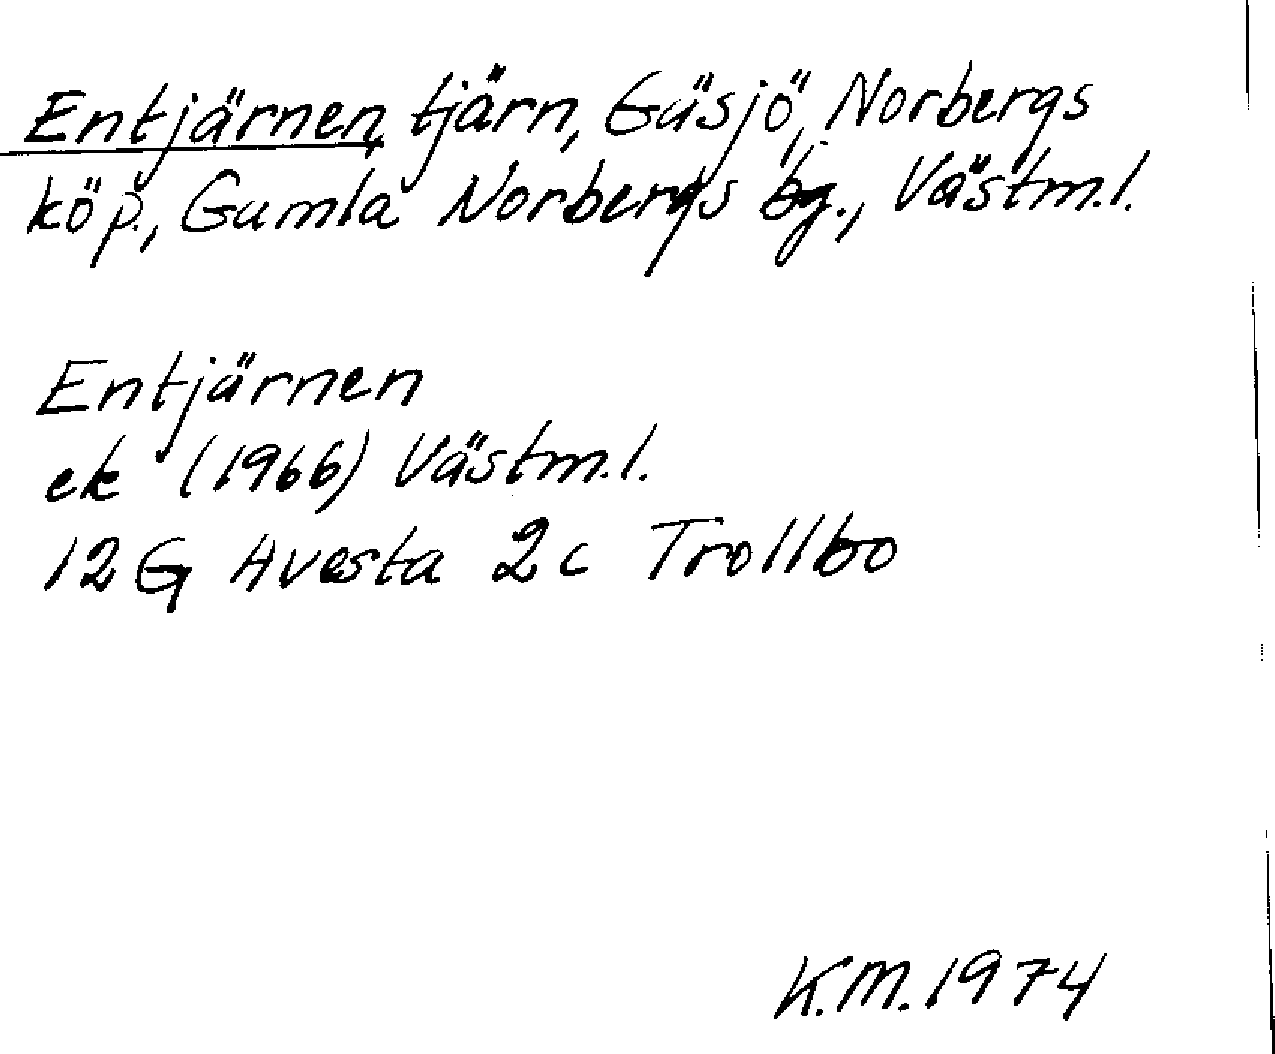 Entjärnen, tjärn, Gäsjö, Norbergs
köp., Gamla Norbergs bg., Västm.l.
Entjärnen
ek (1966) Västm.l.
12G Avesta 2c Trollbo
K.M. 1974